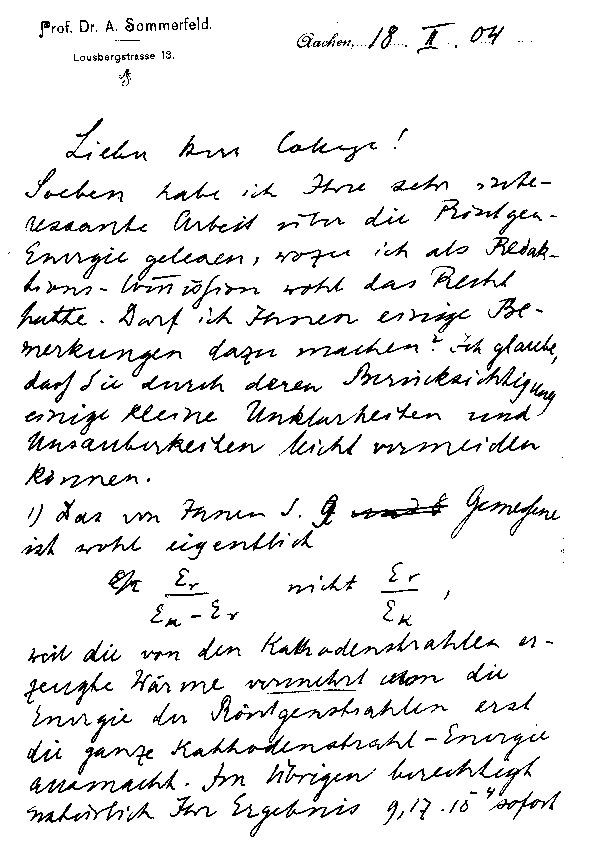 Prof. Dr. A. Sommerfeld.
Lousbergstrasse 13.
Aachen, 18. II. 04
Lieber Herr College!
Soeben habe ich Ihre sehr inte-
ressante Arbeit über die Röntgen-
Energie gelesen, wozu ich als Redak-
tions-Com̄ission wohl das Recht
hatte. Darf ich Ihnen einige Be-
merkungen dazu machen? Ich glaube,
daß Sie durch deren Berücksichtigung
einige kleine Unklarheiten und
Unsauberkeiten leicht vermeiden
können.
1) Das von Ihnen S. 9 und 8 Gemessene
ist wohl eigentlich
E_r / (E_k − E_r) nicht E_r / E_k ,
weil die von den Kathodenstrahlen er-
zeugte Wärme vermehrt um die
Energie der Röntgenstrahlen erst
die ganze Kathodenstrahl-Energie
ausmacht. Im Übrigen berechtigt
natürlich Ihr Ergebnis 9,17.10⁻⁴ sofort